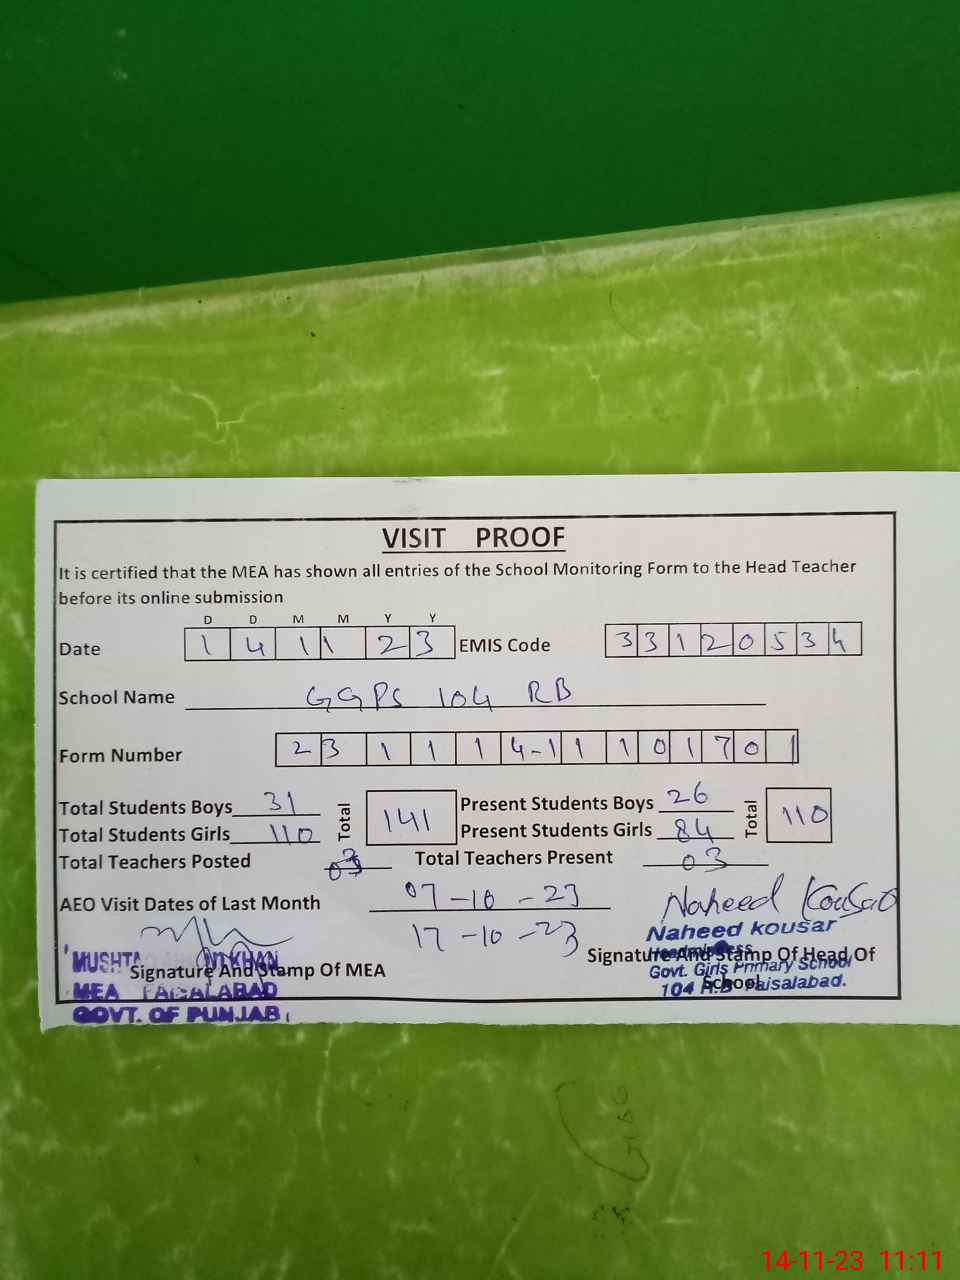 VISIT PROOF
It is certified that the MEA has shown all entries of the School Monitoring Form to the Head Teacher
before its online submission
D D M M Y Y
Date 1 4 1 1 2 3 EMIS Code 3 3 1 2 0 5 3 4
School Name GGPS 104 RB
Form Number 2 3 1 1 1 4-1 1 1 0 1 7 0 1
Total Students Boys 31 Total 141 Present Students Boys 26 Total 110
Total Students Girls 110 Present Students Girls 84
Total Teachers Posted 03 Total Teachers Present 03
AEO Visit Dates of Last Month 07-10-23 Naheed Kousar
17-10-23 Naheed kousar
Signature And Stamp Of MEA Signature And Stamp Of Head Of
School
Headmistress
Govt. Girls Primary School
104 R.B Faisalabad.
KHAN
MEA FAISALABAD
GOVT. OF PUNJAB
14-11-23 11:11